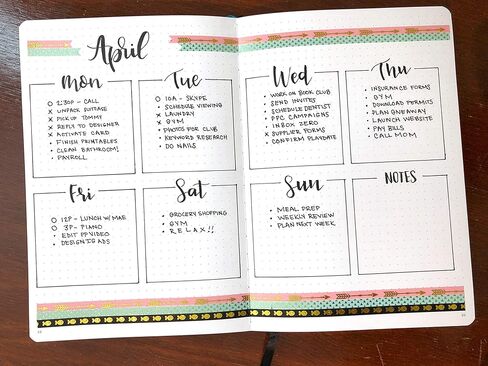 April
Mon
O 2:30P - CALL
X UNPACK SUITCASE
X PICKUP TOMMY
X REPLY TO DESIGNER
X ACTIVATE CARD
• FINISH PRINTABLES
• CLEAN BATHROOM!
• PAYROLL
Tue
O 10A - SKYPE
X SCHEDULE VIEWING
X LAUNDRY
X GYM
• PHOTOS FOR CLUB
• KEYWORD RESEARCH
• DO NAILS
Wed
X WORK ON BOOK CLUB
• SEND INVITES
• SCHEDULE DENTIST
• PPC CAMPAIGNS
• INBOX ZERO
X SUPPLIER FORMS
• CONFIRM PLAYDATE
Thu
• INSURANCE FORMS
• GYM
• DOWNLOAD PERMITS
• PLAN GIVEAWAY
• LAUNCH WEBSITE
• PAY BILLS
• CALL MOM
Fri
O 12P - LUNCH W/ MAE
O 3P - PIANO
• EDIT PP VIDEO
• DESIGN IG ADS
Sat
• GROCERY SHOPPING
• GYM
• RELAX!!
Sun
• MEAL PREP
• WEEKLY REVIEW
• PLAN NEXT WEEK
NOTES